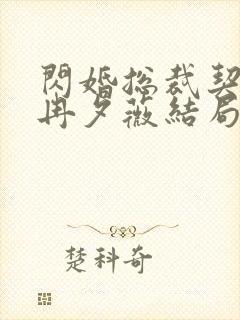 閃婚總裁契
冉夕薇結局
楚科奇